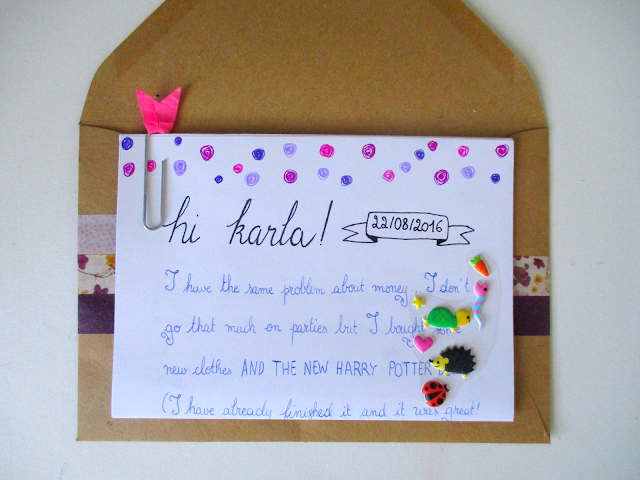 hi karla! 22/08/2016
I have the same problem about money... I don't
go that much on parties but I bought some
new clothes AND THE NEW HARRY POTTER
(I have already finished it and it was great!